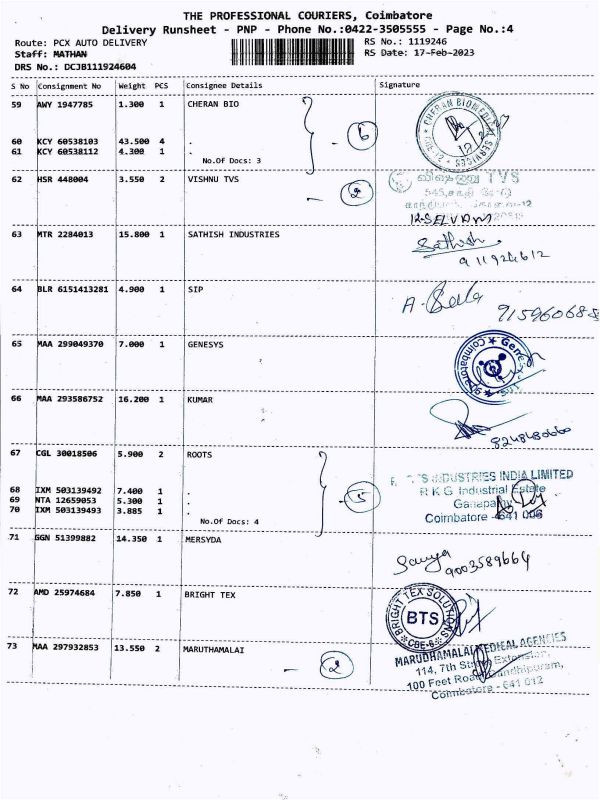 THE PROFESSIONAL COURIERS, Coimbatore
Delivery Runsheet - PNP - Phone No.:0422-3505555 - Page No.:4
Route: PCX AUTO DELIVERY RS No.: 1119246
Staff: MATHAN RS Date: 17-Feb-2023
DRS No.: DCJB111924604
S No Consignment No Weight PCS Consignee Details Signature
59 AWY 1947785 1.300 1 CHERAN BIO
CHERAN BIOMEDICAL SERVICES
6
60 KCY 60538103 43.500 4 .
61 KCY 60538112 4.300 1 .
No.Of Docs: 3
62 HSR 448004 3.550 2 VISHNU TVS
- 2
விஷ்ணு TVS
63 MTR 2284013 15.800 1 SATHISH INDUSTRIES
Sathish
911924612
64 BLR 6151413281 4.900 1 SIP
65 MAA 299049370 7.000 1 GENESYS
Coimbatore
66 MAA 293586752 16.200 1 KUMAR
8248480660
67 CGL 30018506 5.900 2 ROOTS
TS INDUSTRIES INDIA LIMITED
R K G Industrial Estate
Ganapathy
Coimbatore - 641 006
68 IXM 503139492 7.400 1 .
69 NTA 12659053 5.300 1 .
- 5
70 IXM 503139493 3.885 1 .
No.Of Docs: 4
71 GGN 51399882 14.350 1 MERSYDA
9003589664
72 AMD 25974684 7.850 1 BRIGHT TEX
BRIGHT TEX SOLUTIONS
BTS
CBE-6
73 MAA 297932853 13.550 2 MARUTHAMALAI
- 2
MARUDHAMALAI MEDICAL AGENCIES
114, 7th Street Extension,
100 Feet Road, Gandhipuram,
Coimbatore - 641 012